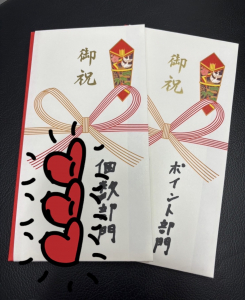 御祝
個数部門
御祝
ポイント部門